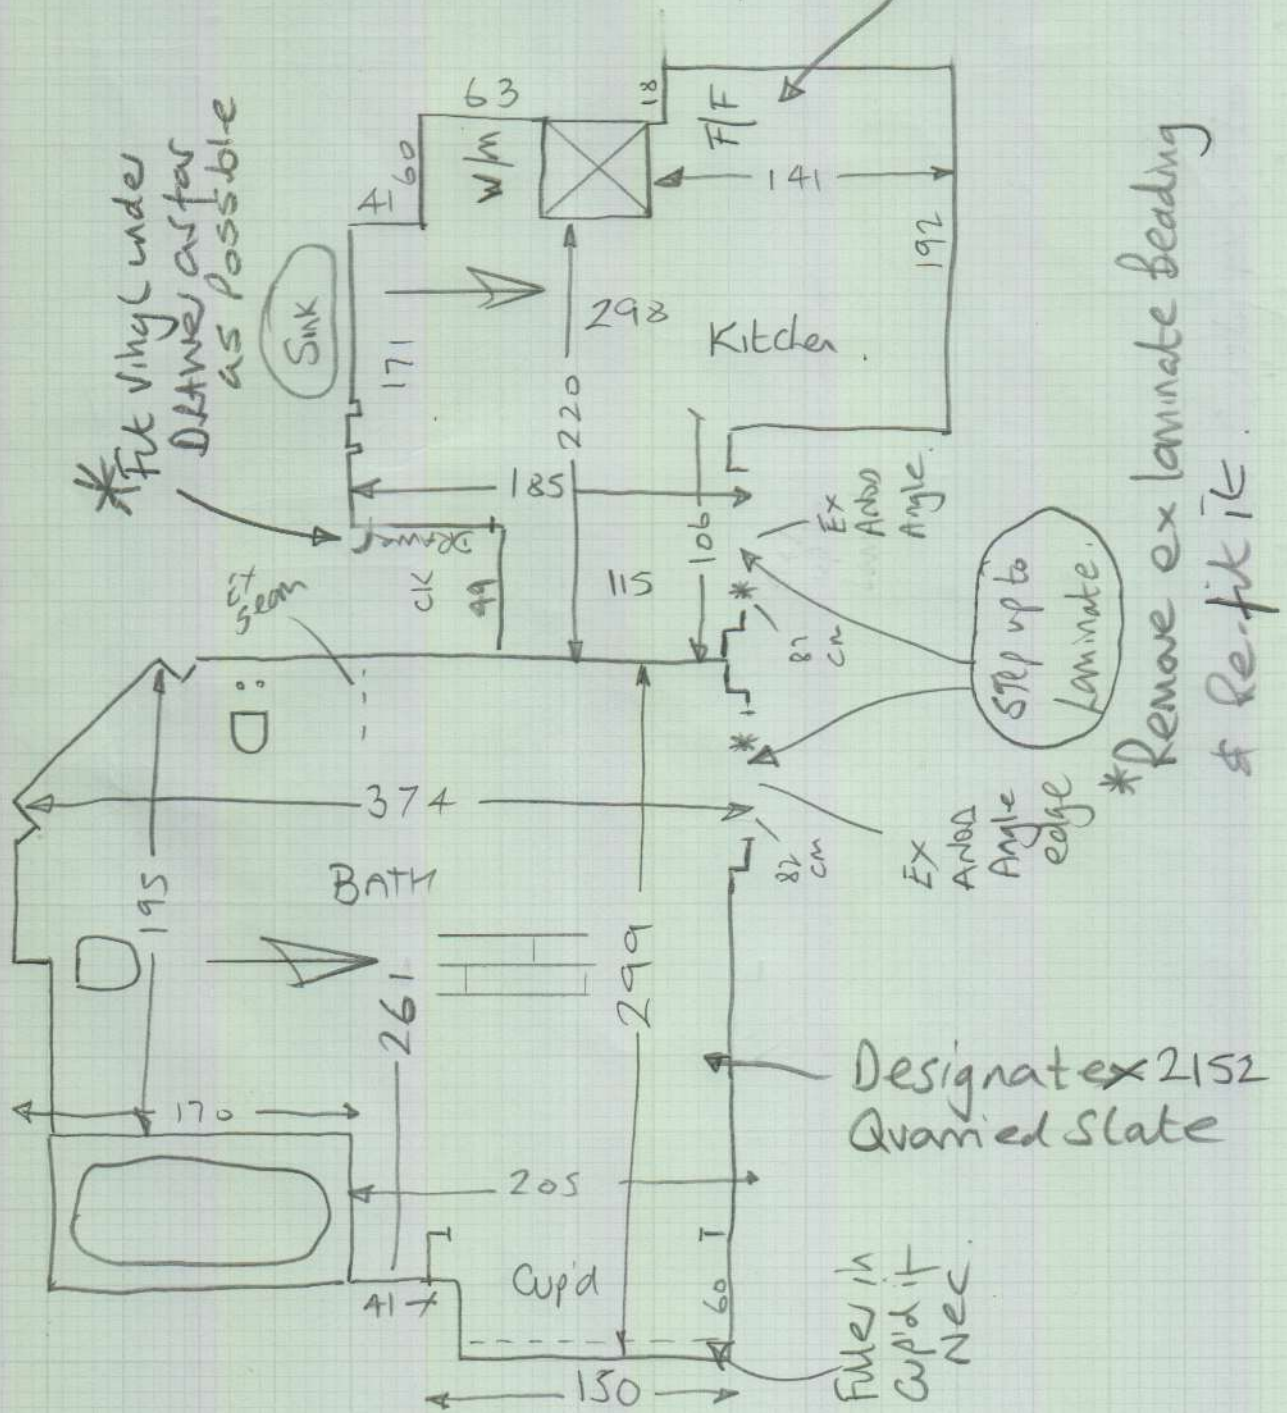 *Fit Vinyl under
Drawer as far
as Possible
Sink
41
60
63
W/m
18
F/F
141
192
171
298
220
Kitchen
185
Drawer
CK
99
115
106
Ex
Anod
Angle.
*
82
cm
Step up to
Laminate.
*Remove ex laminate Beading
& Re-fit it.
Ex
Seam
374
195
BATH
261
299
*
82
cm
Ex
Anod
Angle
edge
170
205
Designatex 2152
Quarried Slate
41
Cup'd
60
150
Filler in
Cup'd if
Nec.